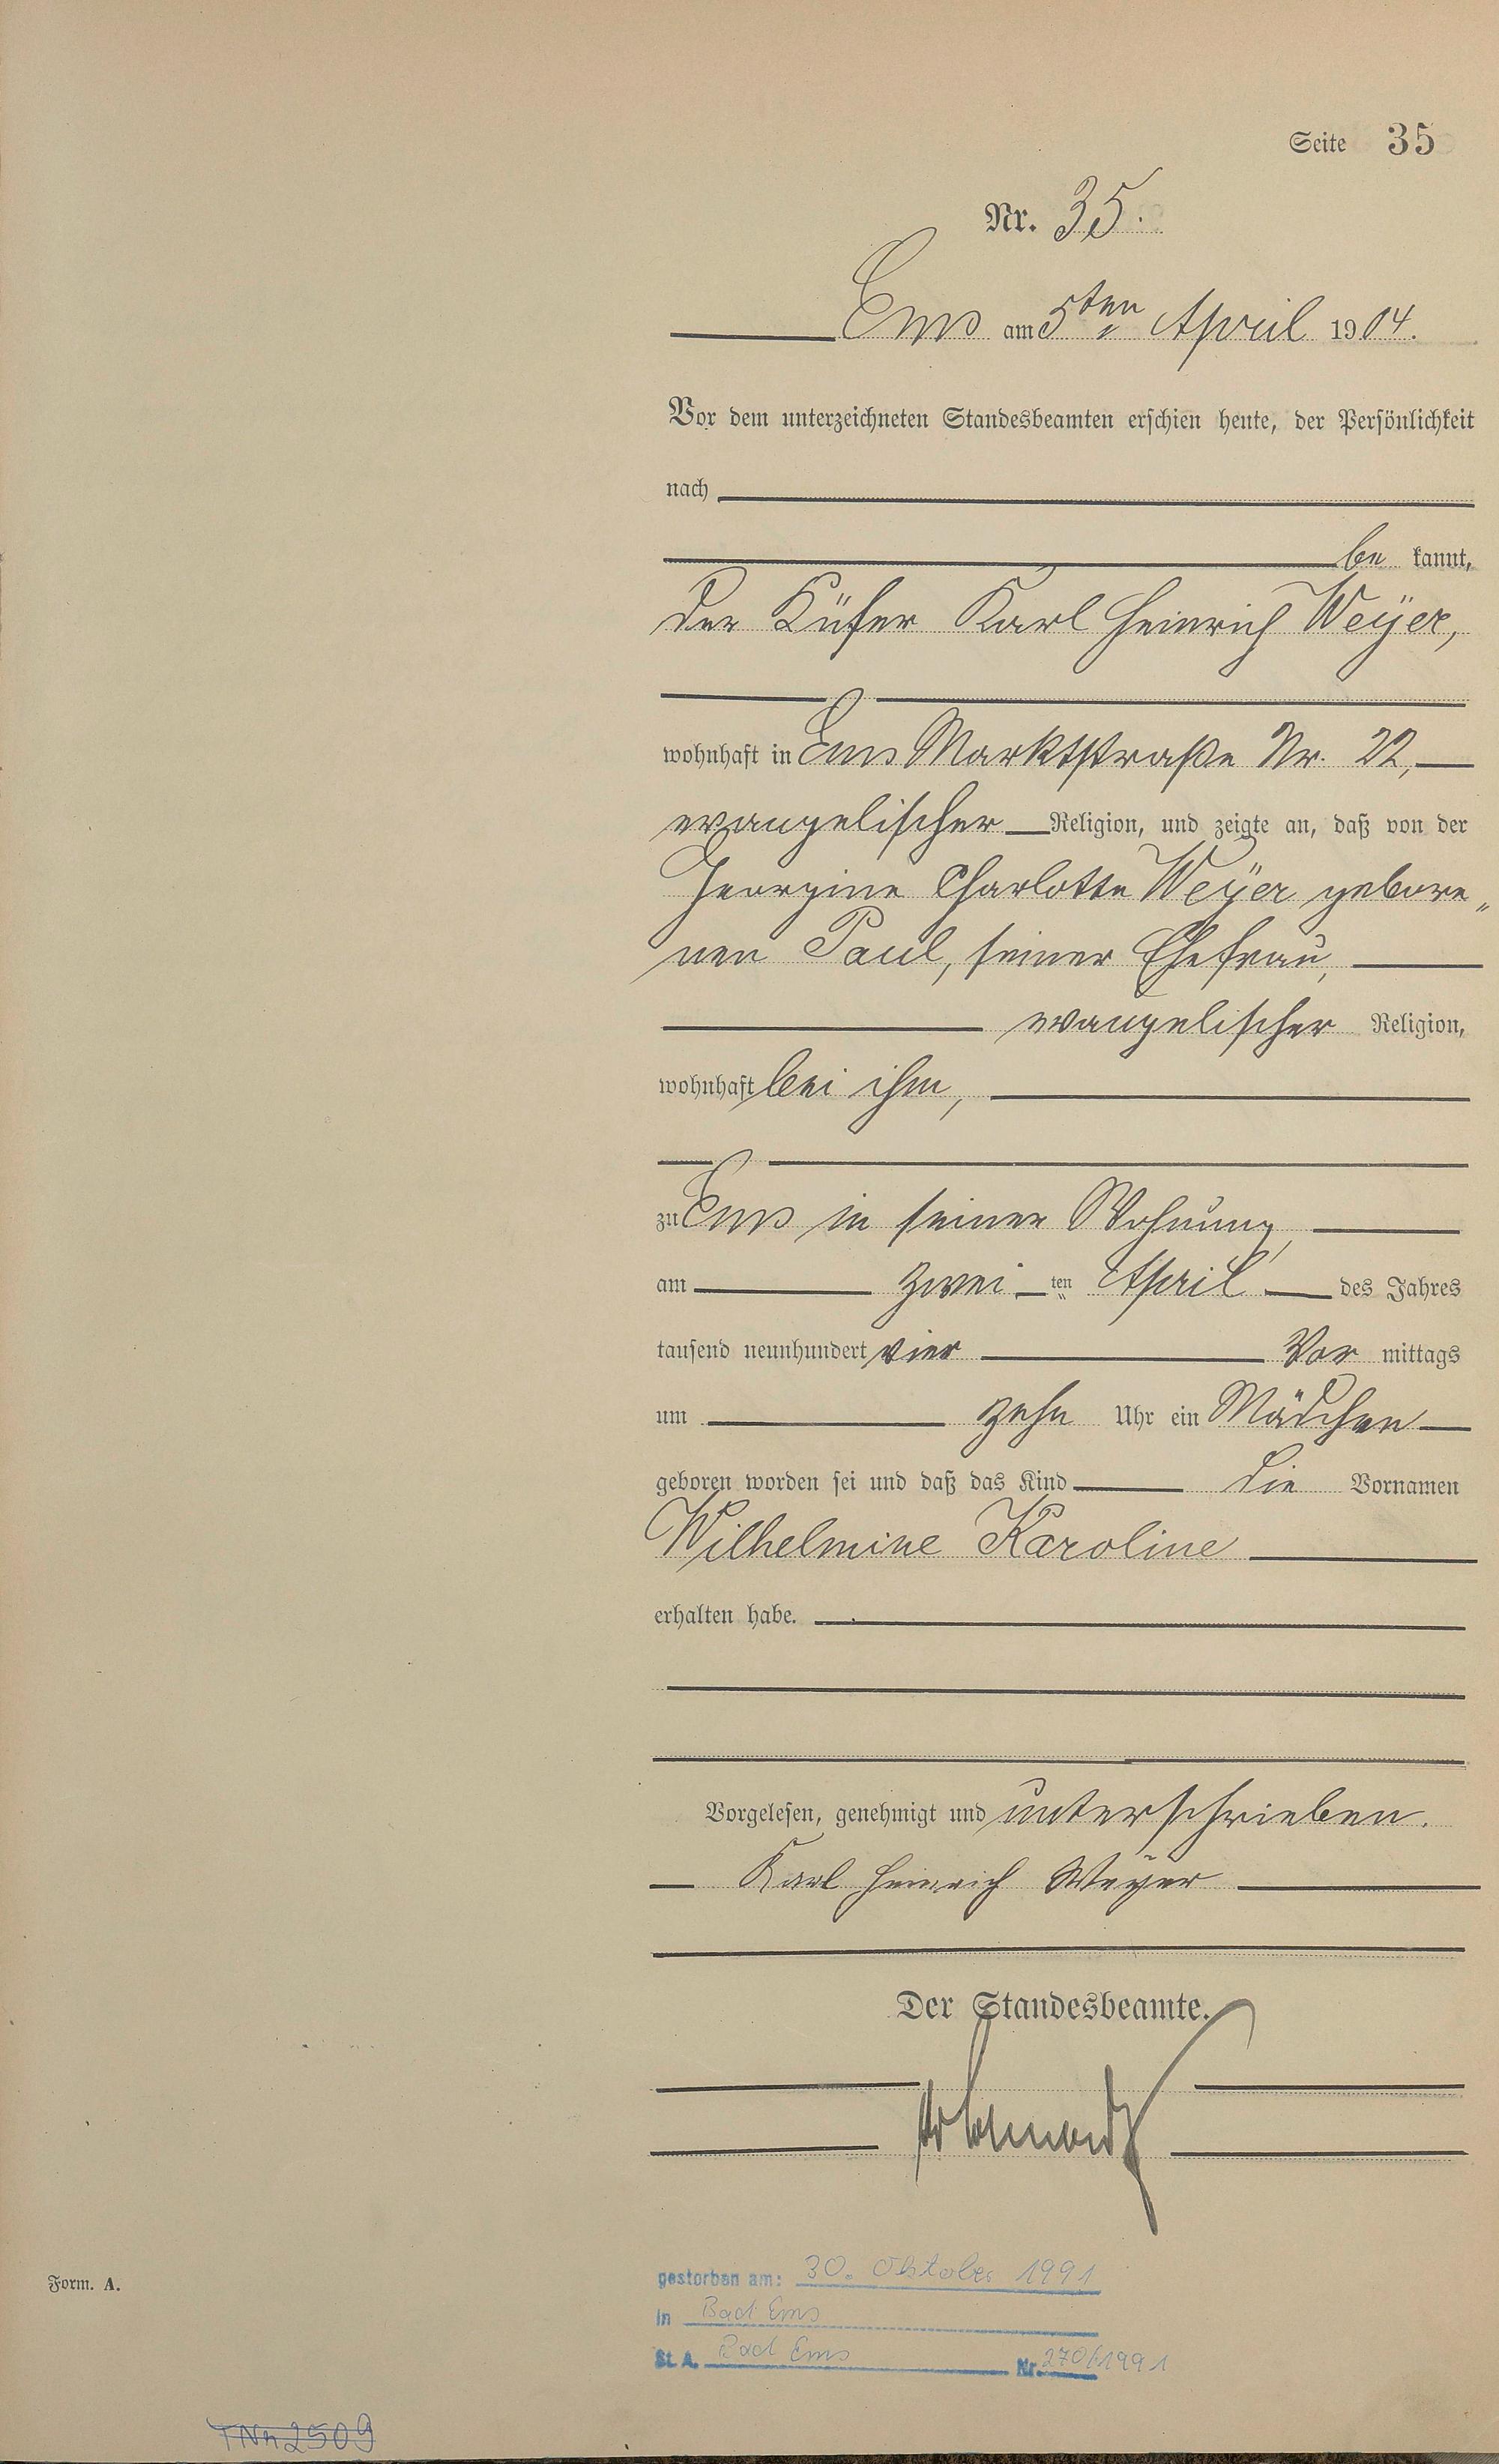 Seite 35
Nr. 35.
Ems am 5ten April 1904.
Vor dem unterzeichneten Standesbeamten erschien heute, der Persönlichkeit
nach
be kannt,
der Küfer Karl Heinrich Weÿer,
wohnhaft in Ems Marktstraße Nr. 22,
evangelischer Religion, und zeigte an, daß von der
Georgine Charlotte Weÿer gebore„
nen Paul, seiner Ehefrau,
evangelischer Religion,
wohnhaft bei ihm,
zu Ems in seiner Wohnung,
am zwei ten April des Jahres
tausend neunhundert vier Vor mittags
um zehn Uhr ein Mädchen
geboren worden sei und daß das Kind die Vornamen
Wilhelmine Karoline
erhalten habe.
Vorgelesen, genehmigt und unterschrieben.
Karl Heinrich Weÿer
Der Standesbeamte.
gestorben am: 30. Oktober 1991
Form. A.
in Bad Ems
St. A. Bad Ems Nr. 270/1991
TNr 2509